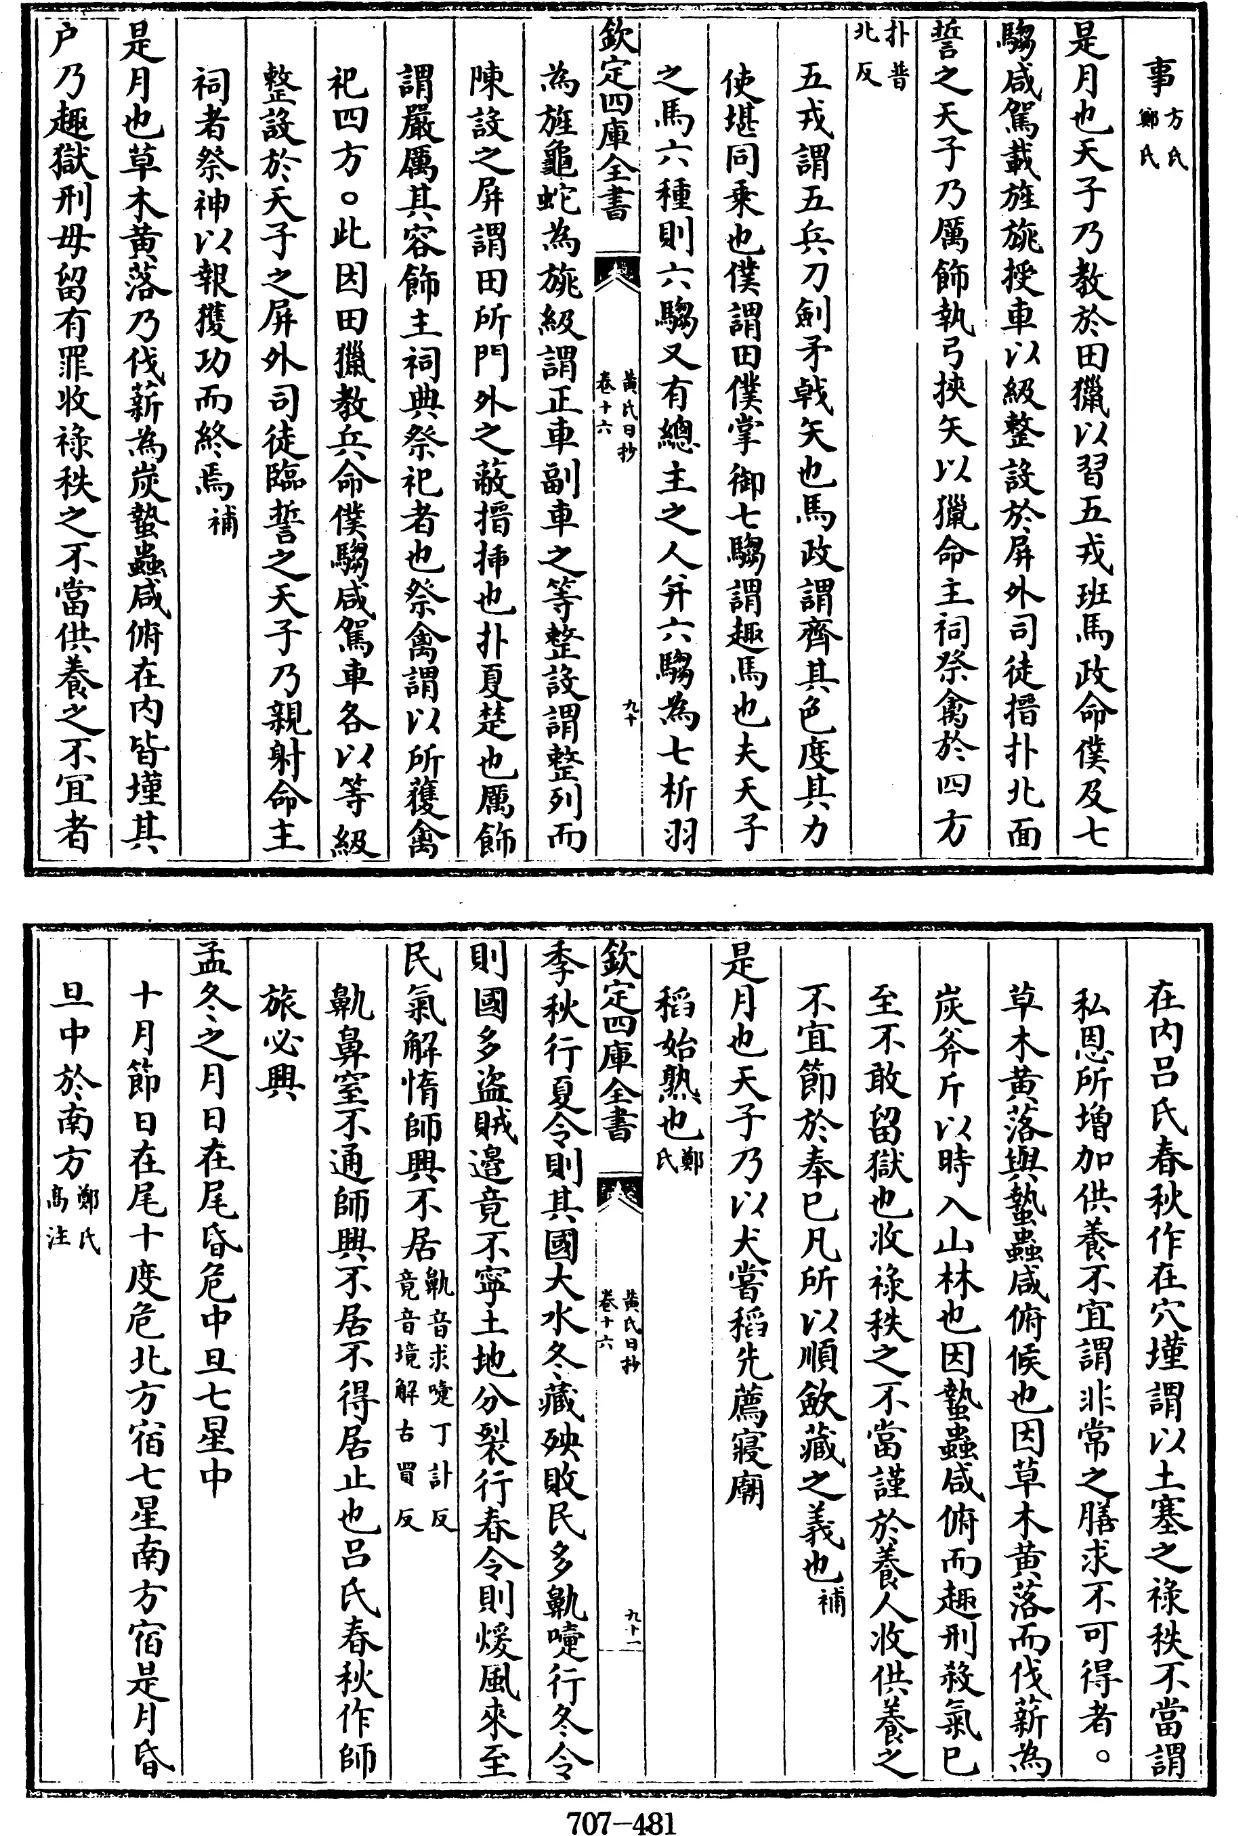 事方氏鄭氏
是月也天子乃教於田獵以習五戎班馬政命僕及七
騶咸駕載旌旐授車以級整設於屏外司徒搢扑北面
誓之天子乃厲飾執弓挾矢以獵命主祠祭禽於四方
扑普北反
五戎謂五兵刀劍矛戟矢也馬政謂齊其色度其力
使堪同乗也僕謂田僕掌御七騶謂趣馬也夫天子
之馬六種則六騶又有總主之人并六騶為七析羽
欽定四庫全書
黄氏日抄
卷十六
九十
為旌龜蛇為旐級謂正車副車之等整設謂整列而
陳設之屏謂田所門外之蔽搢挿也扑夏楚也厲飾
謂嚴厲其容飾主祠典祭祀者也祭禽謂以所獲禽
祀四方。此因田獵教兵命僕騶咸駕車各以等級
整設於天子之屏外司徒臨誓之天子乃親射命主
祠者祭神以報獲功而終焉補
是月也草木黄落乃伐薪為炭蟄蟲咸俯在内皆墐其
户乃趣獄刑毋留有罪收祿秩之不當供養之不宜者
在内呂氏春秋作在穴墐謂以土塞之祿秩不當謂
私恩所增加供養不宜謂非常之膳求不可得者。
草木黄落與蟄蟲咸俯候也因草木黄落而伐薪為
炭斧斤以時入山林也因蟄蟲咸俯而趣刑殺氣已
至不敢留獄也收祿秩之不當謹於養人收供養之
不宜節於奉已凡所以順歛藏之義也補
是月也天子乃以犬嘗稻先薦寢廟
稻始熟也鄭氏
欽定四庫全書
黄氏日抄
卷十六
九十一
季秋行夏令則其國大水冬藏殃敗民多鼽嚏行冬令
則國多盜賊邉竟不寧土地分裂行春令則煖風來至
民氣解惰師興不居鼽音求嚏丁計反竟音境解古買反
鼽鼻窒不通師興不居不得居止也呂氏春秋作師
旅必興
孟冬之月日在尾昏危中旦七星中
十月節日在尾十度危北方宿七星南方宿是月昏
旦中於南方鄭氏高注
707-481